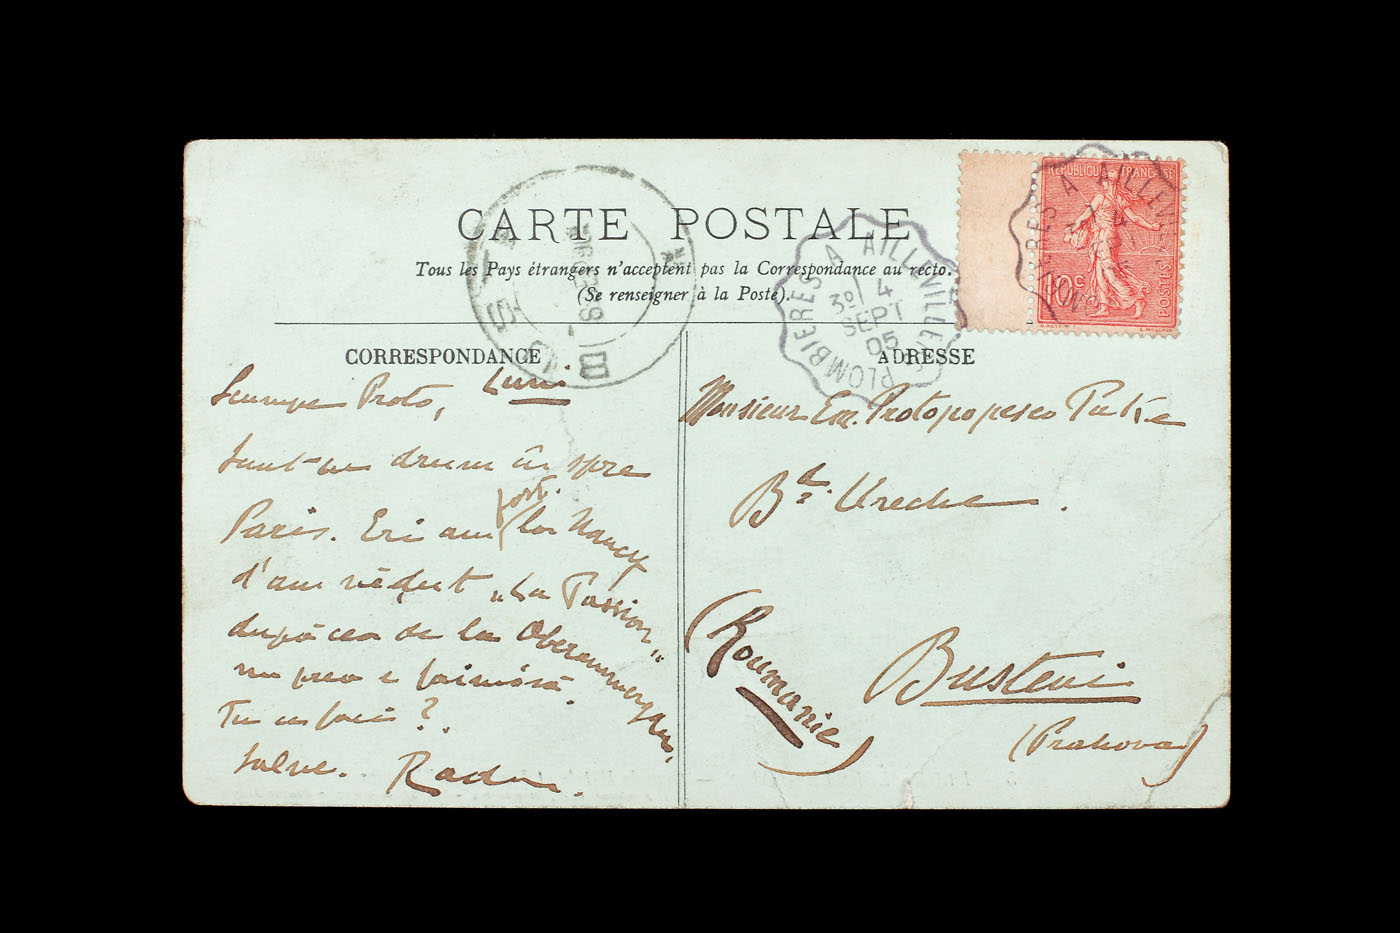 CARTE POSTALE
Tous les Pays étrangers n'acceptent pas la Correspondance au recto.
(Se renseigner à la Poste).
CORRESPONDANCE
Luni
Scumpe Proto,
Sunt in drum în spre
Paris. Eri am fost la Nancy
d'am văzut „La Passion"
după cea de la Oberammergau,
nu prea e faimósă.
Tu ce faci?
Salve. Radu.
ADRESSE
Monsieur Em. Protopopesco
Bd. Ureche.
Busteni
(Prahova)
(Roumanie)
REPUBLIQUE FRANÇAISE
10c
POSTES
PLOMBIERES A AILLEVILLERS
3º
4
SEPT
05